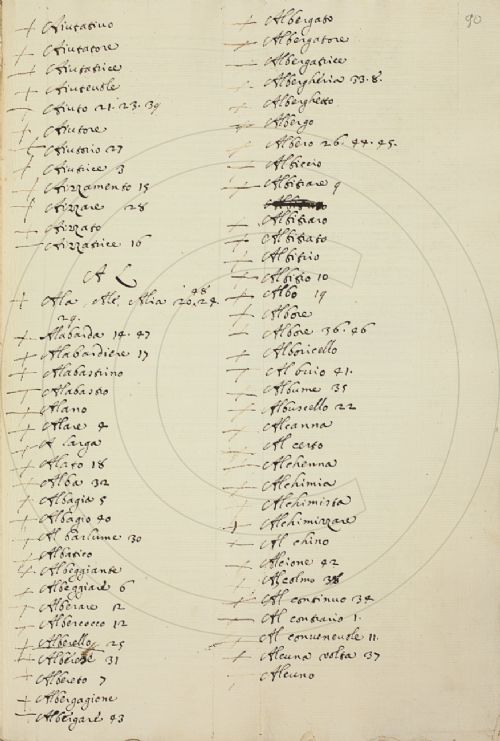 90
Aiutativo
Aiutatore
Aiutatrice
Aiutevole
Aiuto 21. 23. 39
Aiutore
Aiutorio 27
Aiutrice 3
Aizzamento 15
Aizzare 28
Aizzato
Aizzatrice 16
A L
Ala, Ale, Alia 20. 24. 48
29.
Alabarda 14. 47
Alabardiere 17
Alabastrino
Alabastro
Alano
Alare 4
A larga
Alato 18
Alba 32
Albagia 5
Albagio 40
Al barlume 30
Albatico
Albeggiante
Albeggiare 6
Alberare 2
Albercocco 12
Alberello 25
Alberese 31
Albereto 7
Albergagione
Albergare 43
Albergato
Albergatore
Albergatrice
Albergheria 33. 8.
Alberghetto
Albergo
Albero 26. 44. 45.
Albiccio
Albitrare 9
Albitraro
Albitrato
Albitrio
Albitro 10
Albo 19
Albore
Albore 36. 46
Alboricello
Al buio 41.
Albume 35
Albuscello 22
Alcanna
Al certo
Alchenna
Alchimia
Alchimista
Alchimizzare
Al chino
Alcione 42
Al colmo 38
Al continuo 34
Al contrario 1.
Al convenevole 11.
Alcuna volta 37
Alcuno